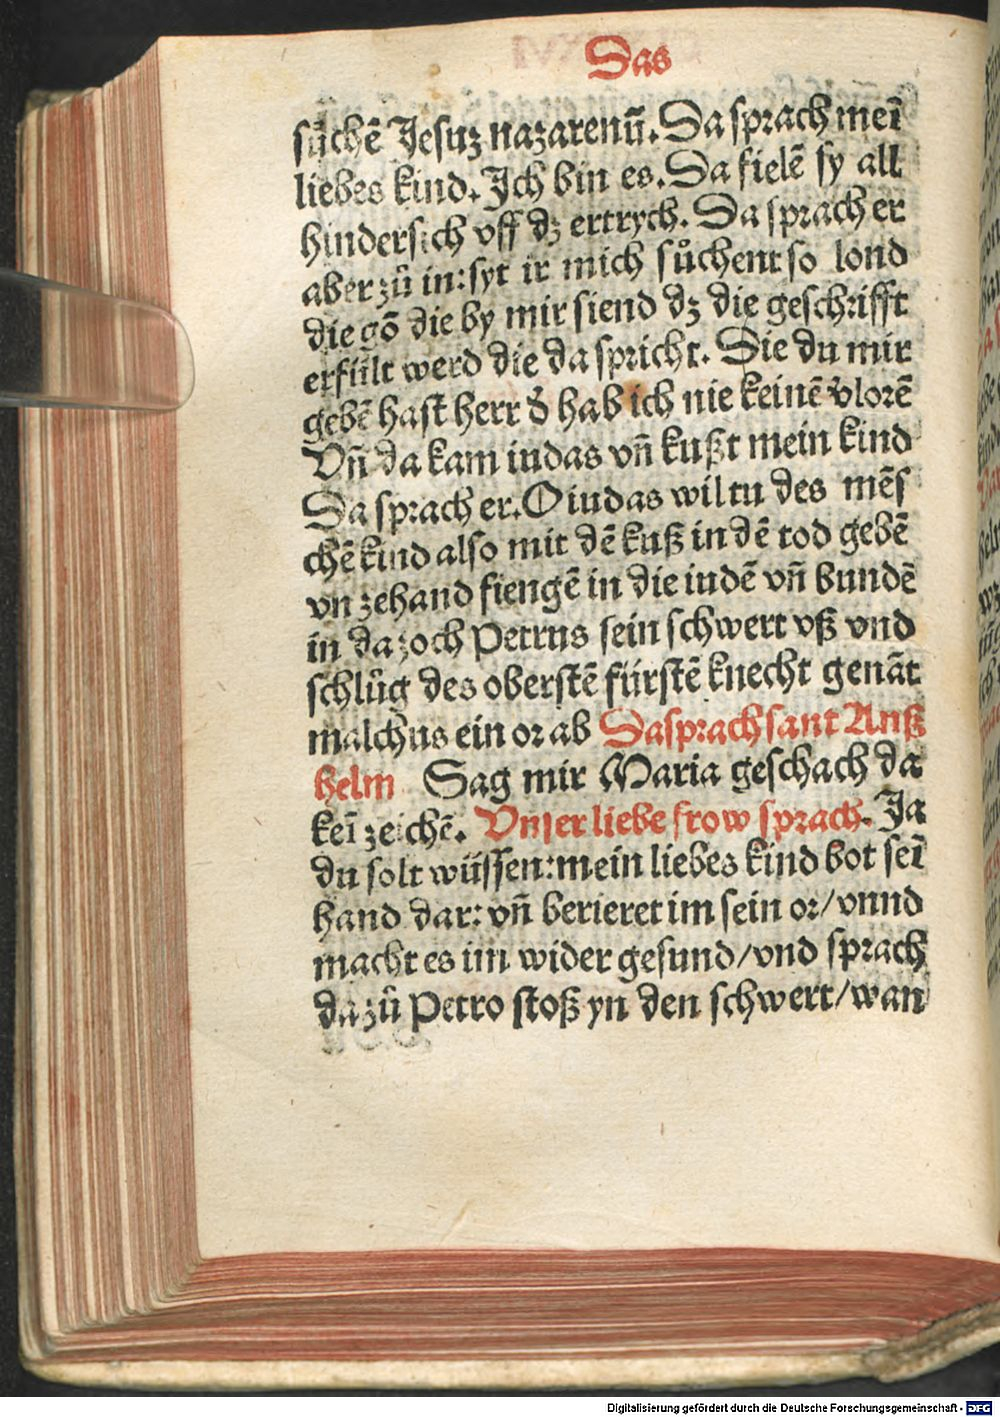 Das
sůchē Jesuz nazarenū. Da sprach meī
liebes kind. Ich bin es. Da fielē sy all
hindersich vff dz ertrych. Da sprach er
aber zů in: syt ir mich sůchent so lond
die gō die by mir siend dz die geschrifft
erfült werd die da spricht. Die du mir
gebē hast herr d̄ hab ich nie keinē v̄lorē
Vn̄ da kam iudas vn̄ kußt mein kind
Da sprach er. O iudas wiltu des mēs
chē kind also mit dē kuß in dē tod gebē
vn zehand fiengē in die iudē vn̄ bundē
in da zoch Petrus sein schwert vß vnd
schlůg des oberstē fürstē knecht genāt
malchus ein or ab Da sprach sant Anß
helm Sag mir Maria geschach da
keī zeichē. Vnser liebe frow sprach. Ja
du solt wüssen: mein liebes kind bot seī
hand dar: vn̄ berieret im sein or/ vnnd
macht es im wider gesund/ vnd sprach
da zů Petro stoß yn den schwert/ wan
Digitalisierung gefördert durch die Deutsche Forschungsgemeinschaft - DFG